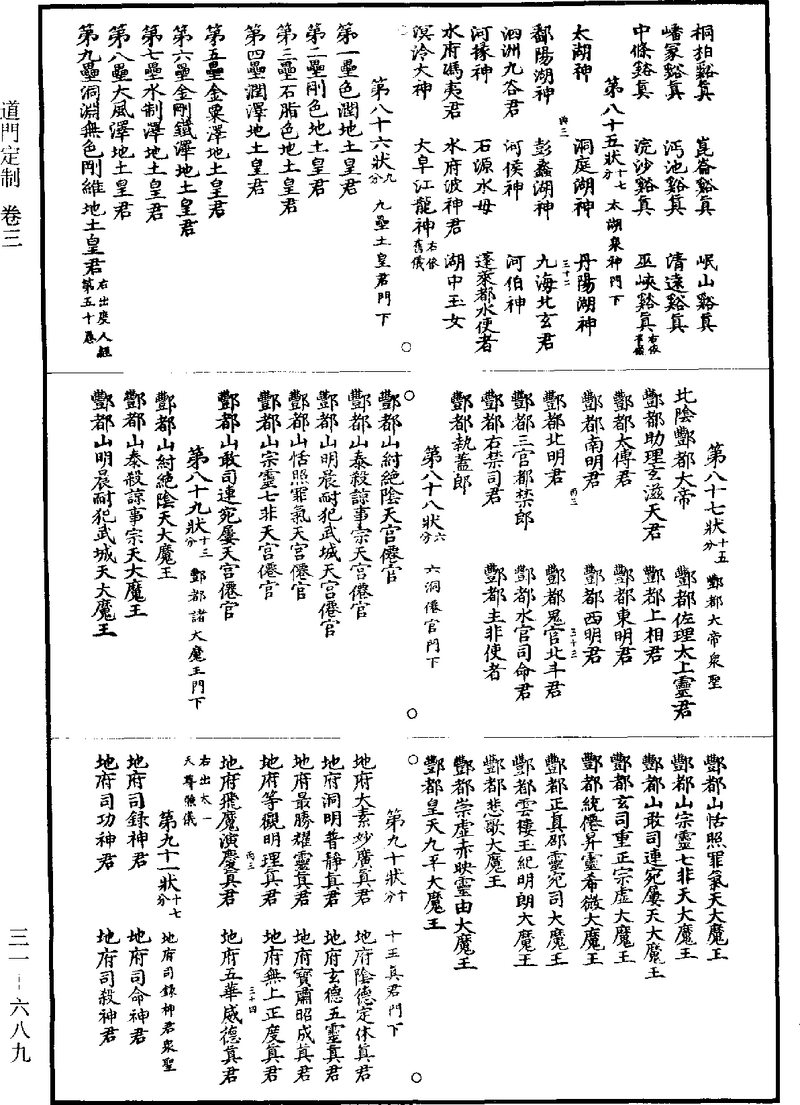 道門定制　卷三
桐柏谿眞　崑崙谿眞　岷山谿眞
嶓冢谿眞　沔池谿眞　清遠谿眞
中條谿眞　浣沙谿眞　巫峽谿眞右依舊儀
第八十五狀十七分　太湖衆神門下
太湖神　洞庭湖神　丹陽湖神
鄱陽湖神　彭蠡湖神　九海北玄君
泗洲九谷君　河侯神　河伯神
河掾神　石源水母　蓬萊都水使者
水府馮夷君　水府波神君　湖中玉女
溟泠大神　大阜江龍神右依舊儀
第八十六狀九分　九壘土皇君門下
第一壘色潤地土皇君
第二壘剛色地土皇君
第三壘石脂色地土皇君
第四壘潤澤地土皇君
第五壘金粟澤地土皇君
第六壘金剛鐵澤地土皇君
第七壘水制澤地土皇君
第八壘大風澤地土皇君
第九壘洞淵無色剛維地土皇君右出度人經第五十卷
第八十七狀十五分　酆都大帝衆聖
北陰酆都大帝　酆都佐理太上靈君
酆都助理玄滋天君　酆都上相君
酆都太傅君　酆都東明君
酆都南明君　酆都西明君
酆都北明君　酆都鬼官北斗君
酆都三官都禁郎　酆都水官司命君
酆都右禁司君　酆都主非使者
酆都執蓋郎
第八十八狀六分　六洞僊官門下
酆都山紂絕陰天宮僊官
酆都山泰殺諒事宗天宮僊官
酆都山明晨耐犯武城天宮僊官
酆都山恬照罪氣天宮僊官
酆都山宗靈七非天宮僊官
酆都山敢司連宛屢天宮僊官
第八十九狀十三分　酆都諸大魔王門下
酆都山紂絕陰天大魔王
酆都山泰殺諒事宗天大魔王
酆都山明晨耐犯武城天大魔王
酆都山恬照罪氣天大魔王
酆都山宗靈七非天大魔王
酆都山敢司連宛屢天大魔王
酆都玄司重正宗虛大魔王
酆都統僊昇靈希微大魔王
酆都正真郎靈宛司大魔王
酆都雲樓王紀明朗大魔王
酆都悲歌大魔王
酆都崇虛赤映靈由大魔王
酆都皇天九平大魔王
第九十狀十分　十王眞君門下
地府大素妙廣眞君　地府陰德定休眞君
地府洞明普靜眞君　地府玄德五靈眞君
地府最勝耀靈眞君　地府寶肅昭成眞君
地府等觀明理眞君　地府無上正度眞君
地府飛魔演慶眞君　地府五華威德眞君
右出太一天尊醮儀
第九十一狀十七分　地府司錄神君衆聖
地府司錄神君　地府司命神君
地府司功神君　地府司殺神君
三一－六八九